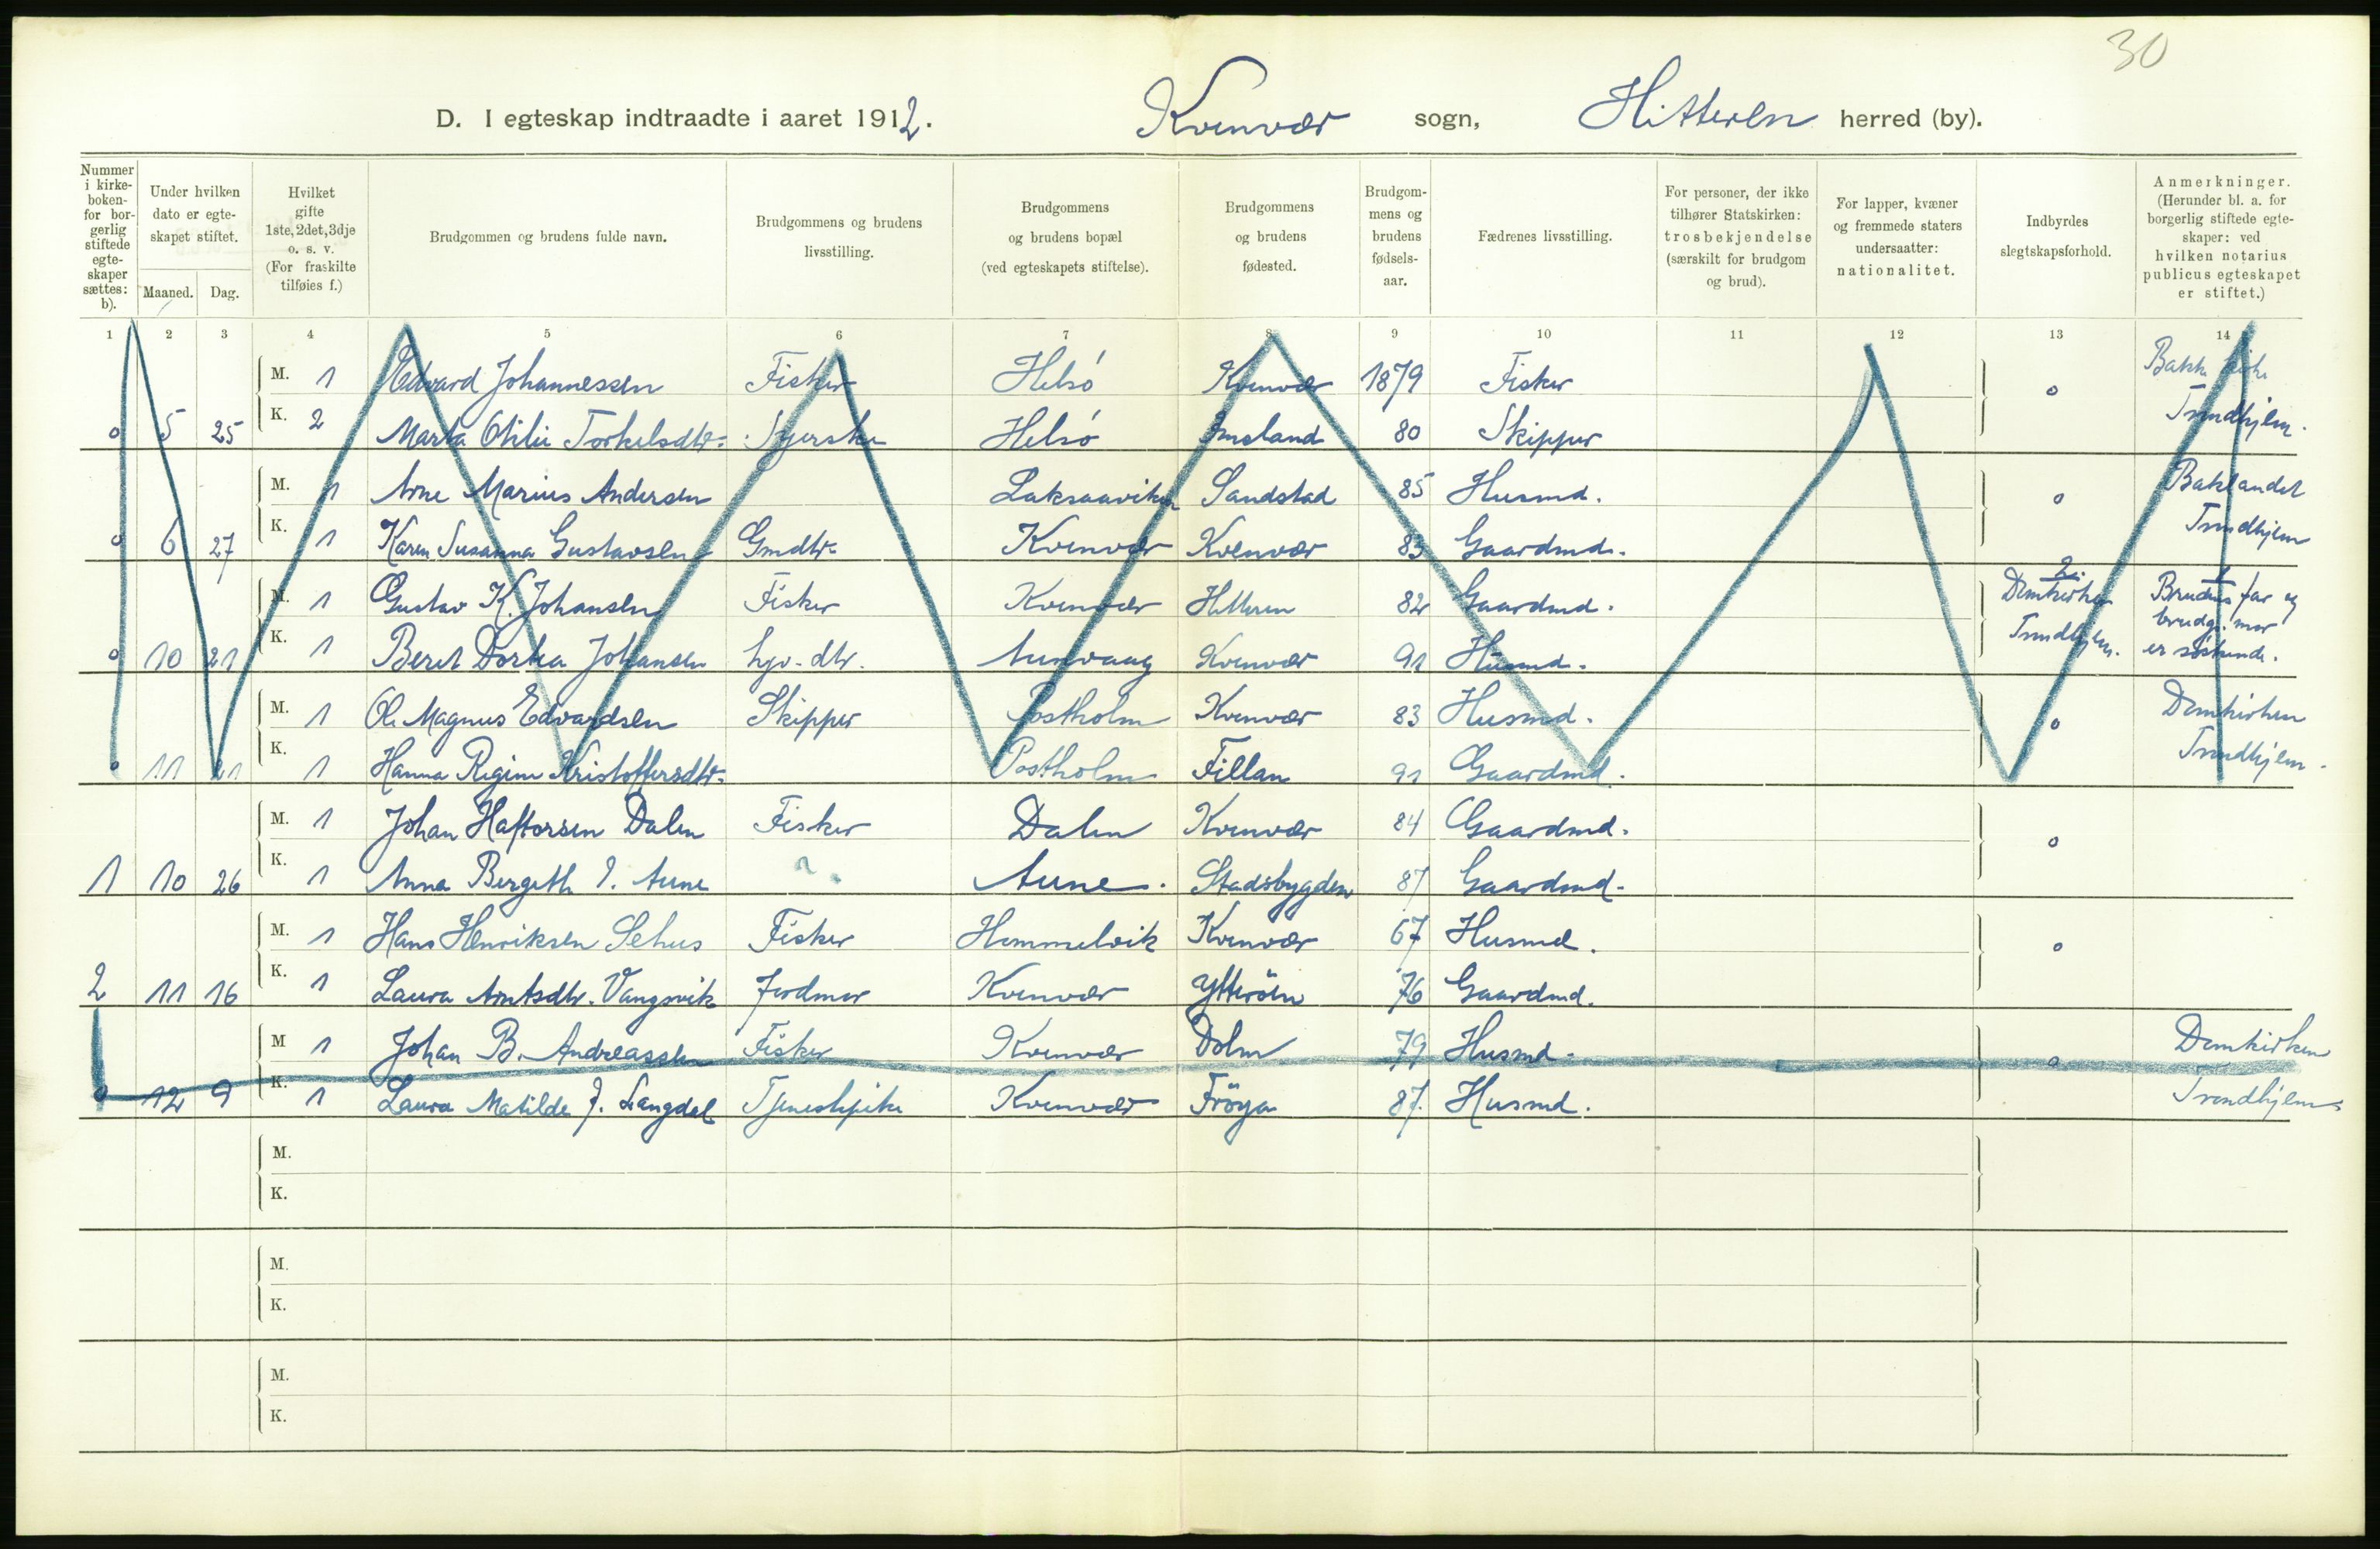 30
D. I egteskap indtraadte i aaret 1912. Kvenvær sogn, Hitteren herred (by).
Nummer i kirke-boken- for bor-gerlig stiftede egte-skaper sættes: b).
Under hvilken dato er egte-skapet stiftet.
Maaned. Dag.
Hvilket gifte 1ste, 2det, 3dje o. s. v. (For fraskilte tilføies f.)
Brudgommen og brudens fulde navn.
Brudgommens og brudens livsstilling.
Brudgommens og brudens bopæl (ved egteskapets stiftelse).
Brudgommens og brudens fødested.
Brudgom-mens og brudens fødsels-aar.
Fædrenes livsstilling.
For personer, der ikke tilhører Statskirken: trosbekjendelse (særskilt for brudgom og brud).
For lapper, kvæner og fremmede staters undersaatter: nationalitet.
Indbyrdes slegtskapsforhold.
Anmerkninger. (Herunder bl. a. for borgerlig stiftede egte-skaper: ved hvilken notarius publicus egteskapet er stiftet.)
1 2 3 4 5 6 7 8 9 10 11 12 13 14
M. 1 Edvard Johannessen Fisker Helsö Kvenvær 1879 Fisker o Bakk kirke
o 5 25 K. 2 Marta Otilie Torkelsdtr. Syerske Helsö Imsland 80 Skipper Trondhjem.
M. 1 Arne Marius Andersen Laksaaviken Sandstad 85 Husmd. o Baklandet
o 6 27 K. 1 Karen Susanna Gustavsen Gmdtr. Kvenvær Kvenvær 83 Gaardmd. Trondhjem
M. 1 Gustav K. Johansen Fisker Kvenvær Hitteren 82 Gaardmd. 2. Domkirken Brudens far og
brudg. mor
o 10 21 K. 1 Beret Dortea Johansen Aunvaag Kvenvær 91 Husmd. Trondhjem. er søskende.
M. 1 Ole Magnus Edvardsen Skipper Postholm Kvenvær 83 Husmd. o Domkirken
o 11 21 K. 1 Hanna Regine Kristoffersdtr. Postholm Fillan 91 Gaardmd. Trondhjem.
M. 1 Johan Haftorsen Dalen Fisker Dalen Kvenvær 84 Gaardmd. o
1 10 26 K. 1 Anna Bergeth I. Aune ? Aune. Stadsbygden 87 Gaardmd.
M. 1 Hans Henriksen Sehus Fisker Hommelvik Kvenvær 67 Husmd. o
2 11 16 K. 1 Laura Arntsdtr. Vangsvik Jordmor Kvenvær Ytteröen 76 Gaardmd.
M 1 Johan B. Andreassen Fisker Kvenvær Dolm 79 Husmd. o Domkirken
o 12 9 K. 1 Laura Matilde J. Langdal Tjenestpike Kvenvær Fröya 87. Husmd. Trondhjem
M.
K.
M.
K.
M.
K.